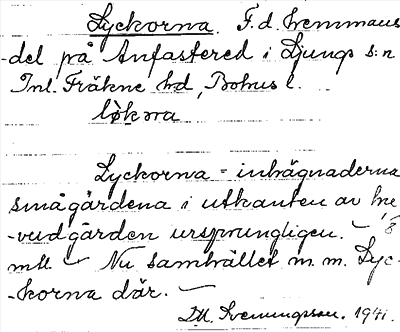 Lyckorna. F. d. hemmans
-del på Anfastered i Ljungs s:n
Inl. Fräkne hd, Bohus l.
lökora
Lyckorna = inhägnaderna
smågärdena i utkanten av hu-
-vudgården ursprungligen. – 
mtl. – Nu samhället m. m. Lyc-
-korna där. –
Dll. Svenungsson. 1941.